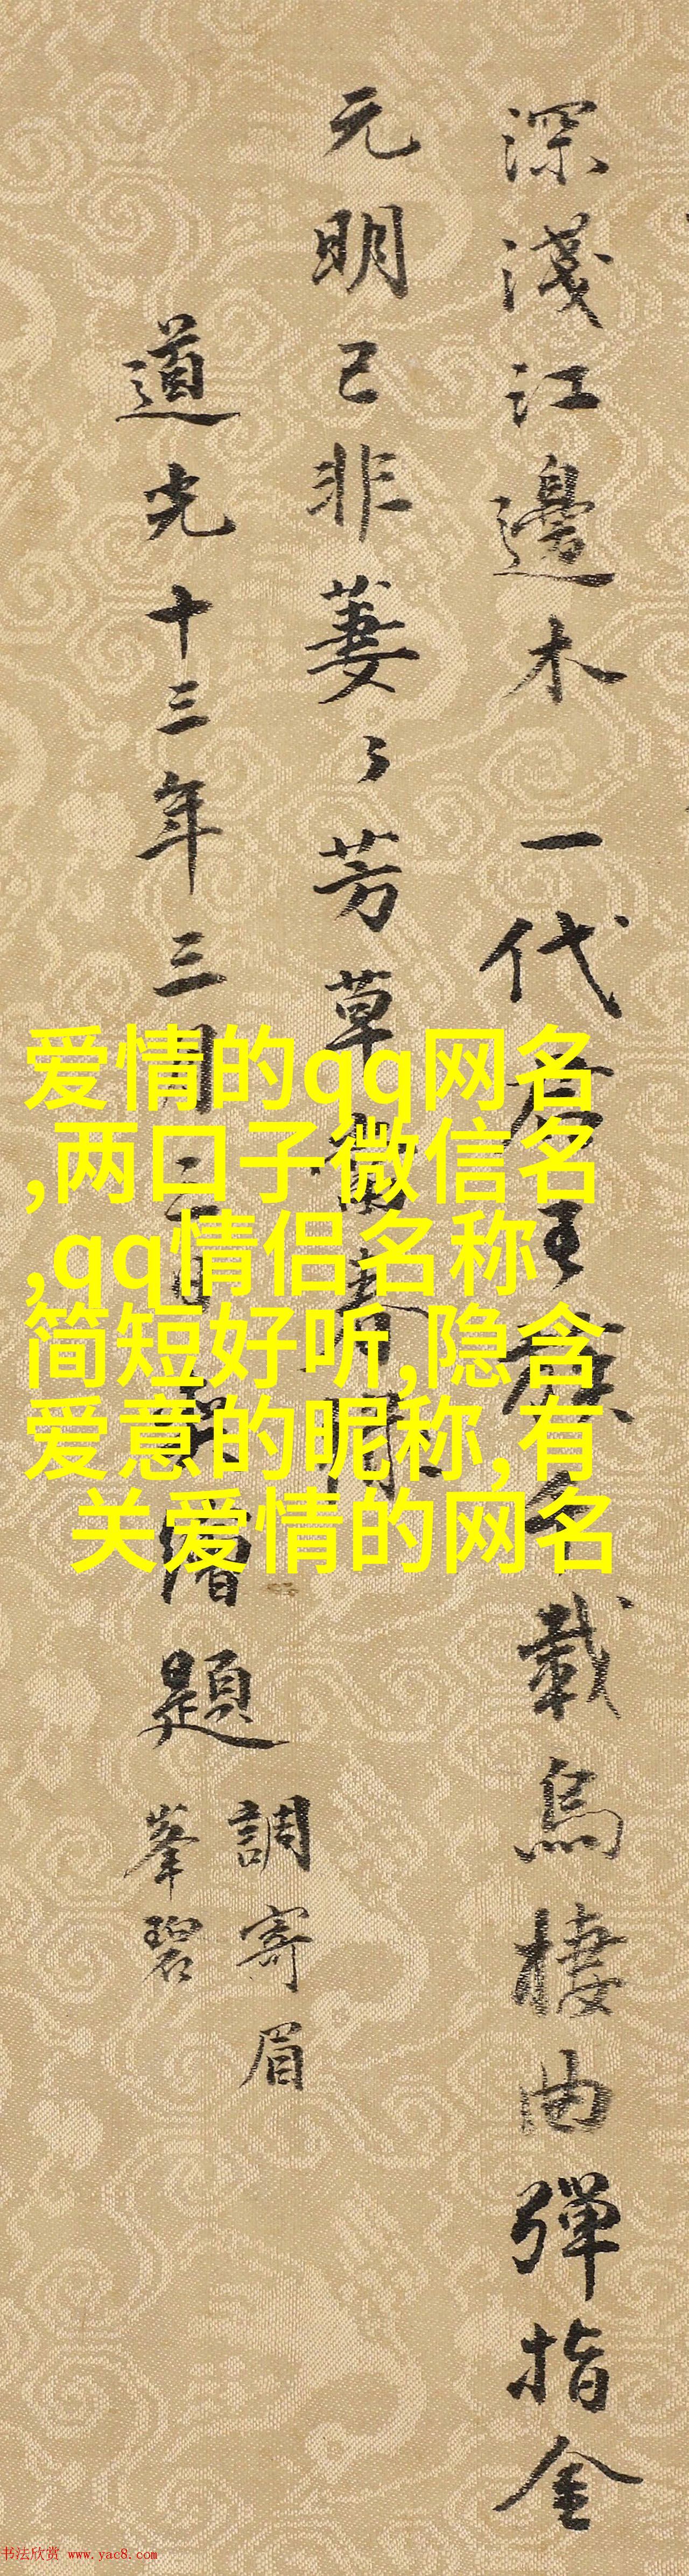 深淺江邊木 一代名王棋 千載烏棲曲彈指金
元明已非萋々芳草舊春閒
道光十三年三月二日
題
調寄眉
峯碧
爱情的qq网名
,两口子微信名
,qq情侣名称
简短好听,隐含
爱意的昵称,有
关爱情的网名
书法欣赏 www.yac8.com